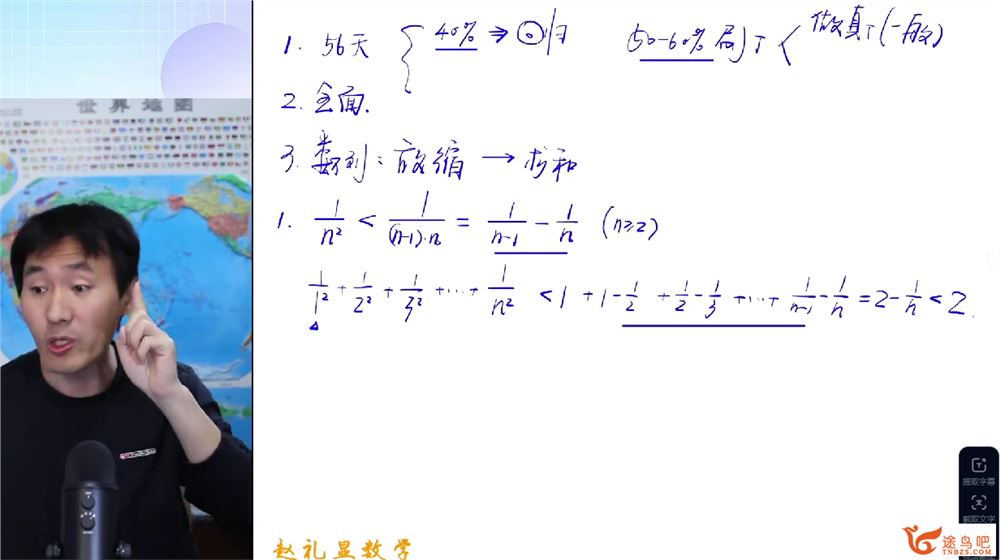 世界地图
1. 56天 { 40% ⇒ ⊙归 50-60% 局下 < 做真下(一般)
2. 全面.
3. 数列: 放缩 → 求和
1. 1/n² < 1/((n-1)·n) = 1/(n-1) - 1/n (n≥2)
1/1² + 1/2² + 1/3² + ... + 1/n² < 1 + 1 - 1/2 + 1/2 - 1/3 + ... + 1/(n-1) - 1/n = 2 - 1/n < 2.
提取字幕
截取文字
赵礼显数学
途鸟吧
TNBZS.COM